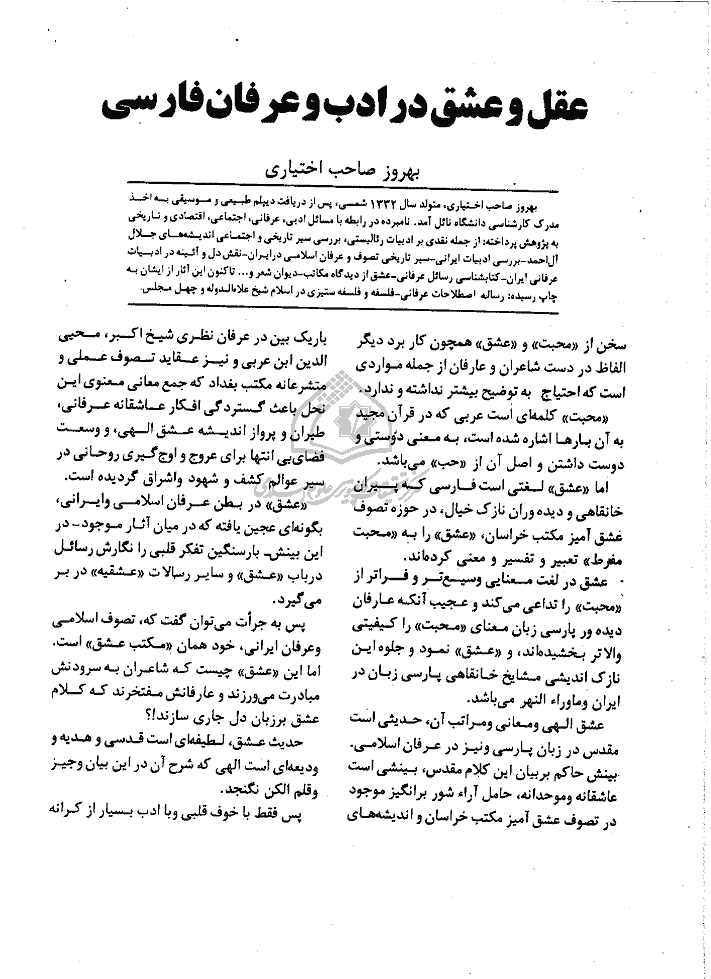 عقل و عشق در ادب و عرفان فارسی
بهروز صاحب اختیاری
بهروز صاحب اختیاری، متولد سال ۱۳۳۲ شمسی، پس از دریافت دیپلم طبیعی و موسیقی به اخذ
مدرک کارشناسی دانشگاه نائل آمد. نامبرده در رابطه با مسائل ادبی، عرفانی، اجتماعی، اقتصادی و تاریخی
به پژوهش پرداخته: از جمله نقدی بر ادبیات رئالیستی، بررسی سیر تاریخی و اجتماعی اندیشه‌های جلال
آل‌احمد-بررسی ادبیات ایرانی-سیر تاریخی تصوف و عرفان اسلامی درایران-نقش دل و آئینه در ادبیات
عرفانی ایران-کتابشناسی رسائل عرفانی-عشق از دیدگاه مکاتب-دیوان شعر و... تاکنون این آثار از ایشان به
چاپ رسیده: رساله اصطلاحات عرفانی-فلسفه و فلسفه ستیزی در اسلام شیخ علاءالدوله و چهل مجلس.
سخن از «محبت» و «عشق» همچون کار برد دیگر
الفاظ در دست شاعران و عارفان از جمله مواردی
است که احتیاج به توضیح بیشتر نداشته و ندارد.
«محبت» کلمه‌ای است عربی که در قرآن مجید
به آن بارها اشاره شده است، به معنی دوستی و
دوست داشتن و اصل آن از «حب» می‌باشد.
اما «عشق» لغتی است فارسی که پیران
خانقاهی و دیده وران نازک خیال، در حوزه تصوف
عشق آمیز مکتب خراسان، «عشق» را به «محبت
مفرط» تعبیر و تفسیر و معنی کرده‌اند.
عشق در لغت معنایی وسیع‌تر و فراتر از
«محبت» را تداعی می‌کند و عجیب آنکه عارفان
دیده ور پارسی زبان معنای «محبت» را کیفیتی
والاتر بخشیده‌اند، و «عشق» نمود و جلوه این
نازک اندیشی مشایخ خانقاهی پارسی زبان در
ایران وماوراء النهر می‌باشد.
عشق الهی ومعانی ومراتب آن، حدیثی است
مقدس در زبان پارسی ونیز در عرفان اسلامی.
بینش حاکم بربیان این کلام مقدس، بینشی است
عاشقانه وموحدانه، حامل آراء شور برانگیز موجود
در تصوف عشق آمیز مکتب خراسان و اندیشه‌های
باریک بین در عرفان نظری شیخ اکبر، محیی
الدین ابن عربی و نیز عقاید تصوف عملی و
متشرعانه مکتب بغداد که جمع معانی معنوی این
نحل باعث گستردگی افکار عاشقانه عرفانی،
طیران و پرواز اندیشه عشق الهی، و وسعت
فضای‌بی انتها برای عروج و اوج‌گیری روحانی در
سیر عوالم کشف و شهود واشراق گردیده است.
«عشق» در بطن عرفان اسلامی وایرانی،
بگونه‌ای عجین یافته که در میان آثار موجود- در
این بینش- بارسنگین تفکر قلبی را نگارش رسائل
درباب «عشق» و سایر رسالات «عشقیه» در بر
می‌گیرد.
پس به جرأت می‌توان گفت که، تصوف اسلامی
وعرفان ایرانی، خود همان «مکتب عشق» است.
اما این «عشق» چیست که شاعران به سرودنش
مبادرت می‌ورزند و عارفانش مفتخرند که کلام
عشق برزبان دل جاری سازند!؟
حدیث عشق، لطیفه‌ای است قدسی و هدیه و
ودیعه‌ای است الهی که شرح آن در این بیان وجیز
وقلم الکن نگنجد.
پس فقط با خوف قلبی وبا ادب بسیار از کرانه